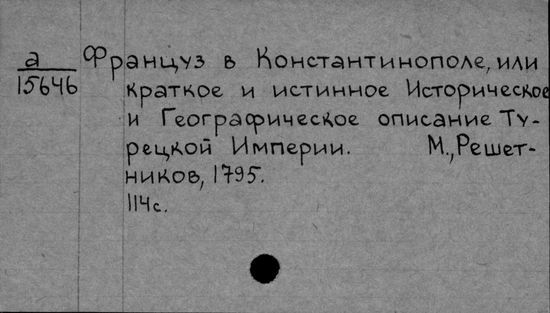 а
15646
Француз в Константинополе, или
краткое и истинное Историческое
и Географическое описание Ту-
рецкой Империи. М., Решет-
ников, 1795.
114с.